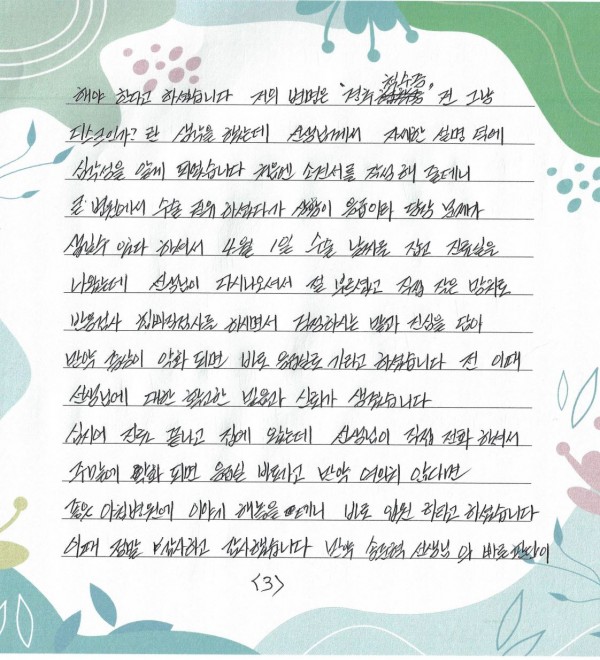 해야 한다고 하셨습니다 저의 병명은 "경추 척수증" 전 그냥
디스크인가? 란 생각을 했는데 선생님께서 자세한 설명 덕에
심각성을 알게 되었습니다 처음엔 소견서를 작성 해 줄테니
큰 병원에서 수술 권유 하셨다가 상황이 응급이라 당장 날짜가
생길수 있다 하셔서 4월 1일 수술 날짜를 잡고 진료실을
나왔는데 선생님이 다시나오셔서 절 부르셨고 직접 작은 망치로
반응검사 하시면서 걱정하시는 말과 진심을 담아
만약 증상이 악화 되면 바로 응급실로 가라고 하셨습니다 전 이때
선생님에 대한 확고한 믿음과 신뢰가 생겼습니다
심지어 진료 끝나고 집에 왔는데 선생님이 직접 전화 하셔서
주말에 악화 되면 응급실 바로가고 만약 여의치 않다면
좋은 아침병원에 이야기 해놓을 테니 바로 입원 하라고 하셨습니다
이때 정말 감사하고 감사했습니다 만약 선생님 의 바로
<3>